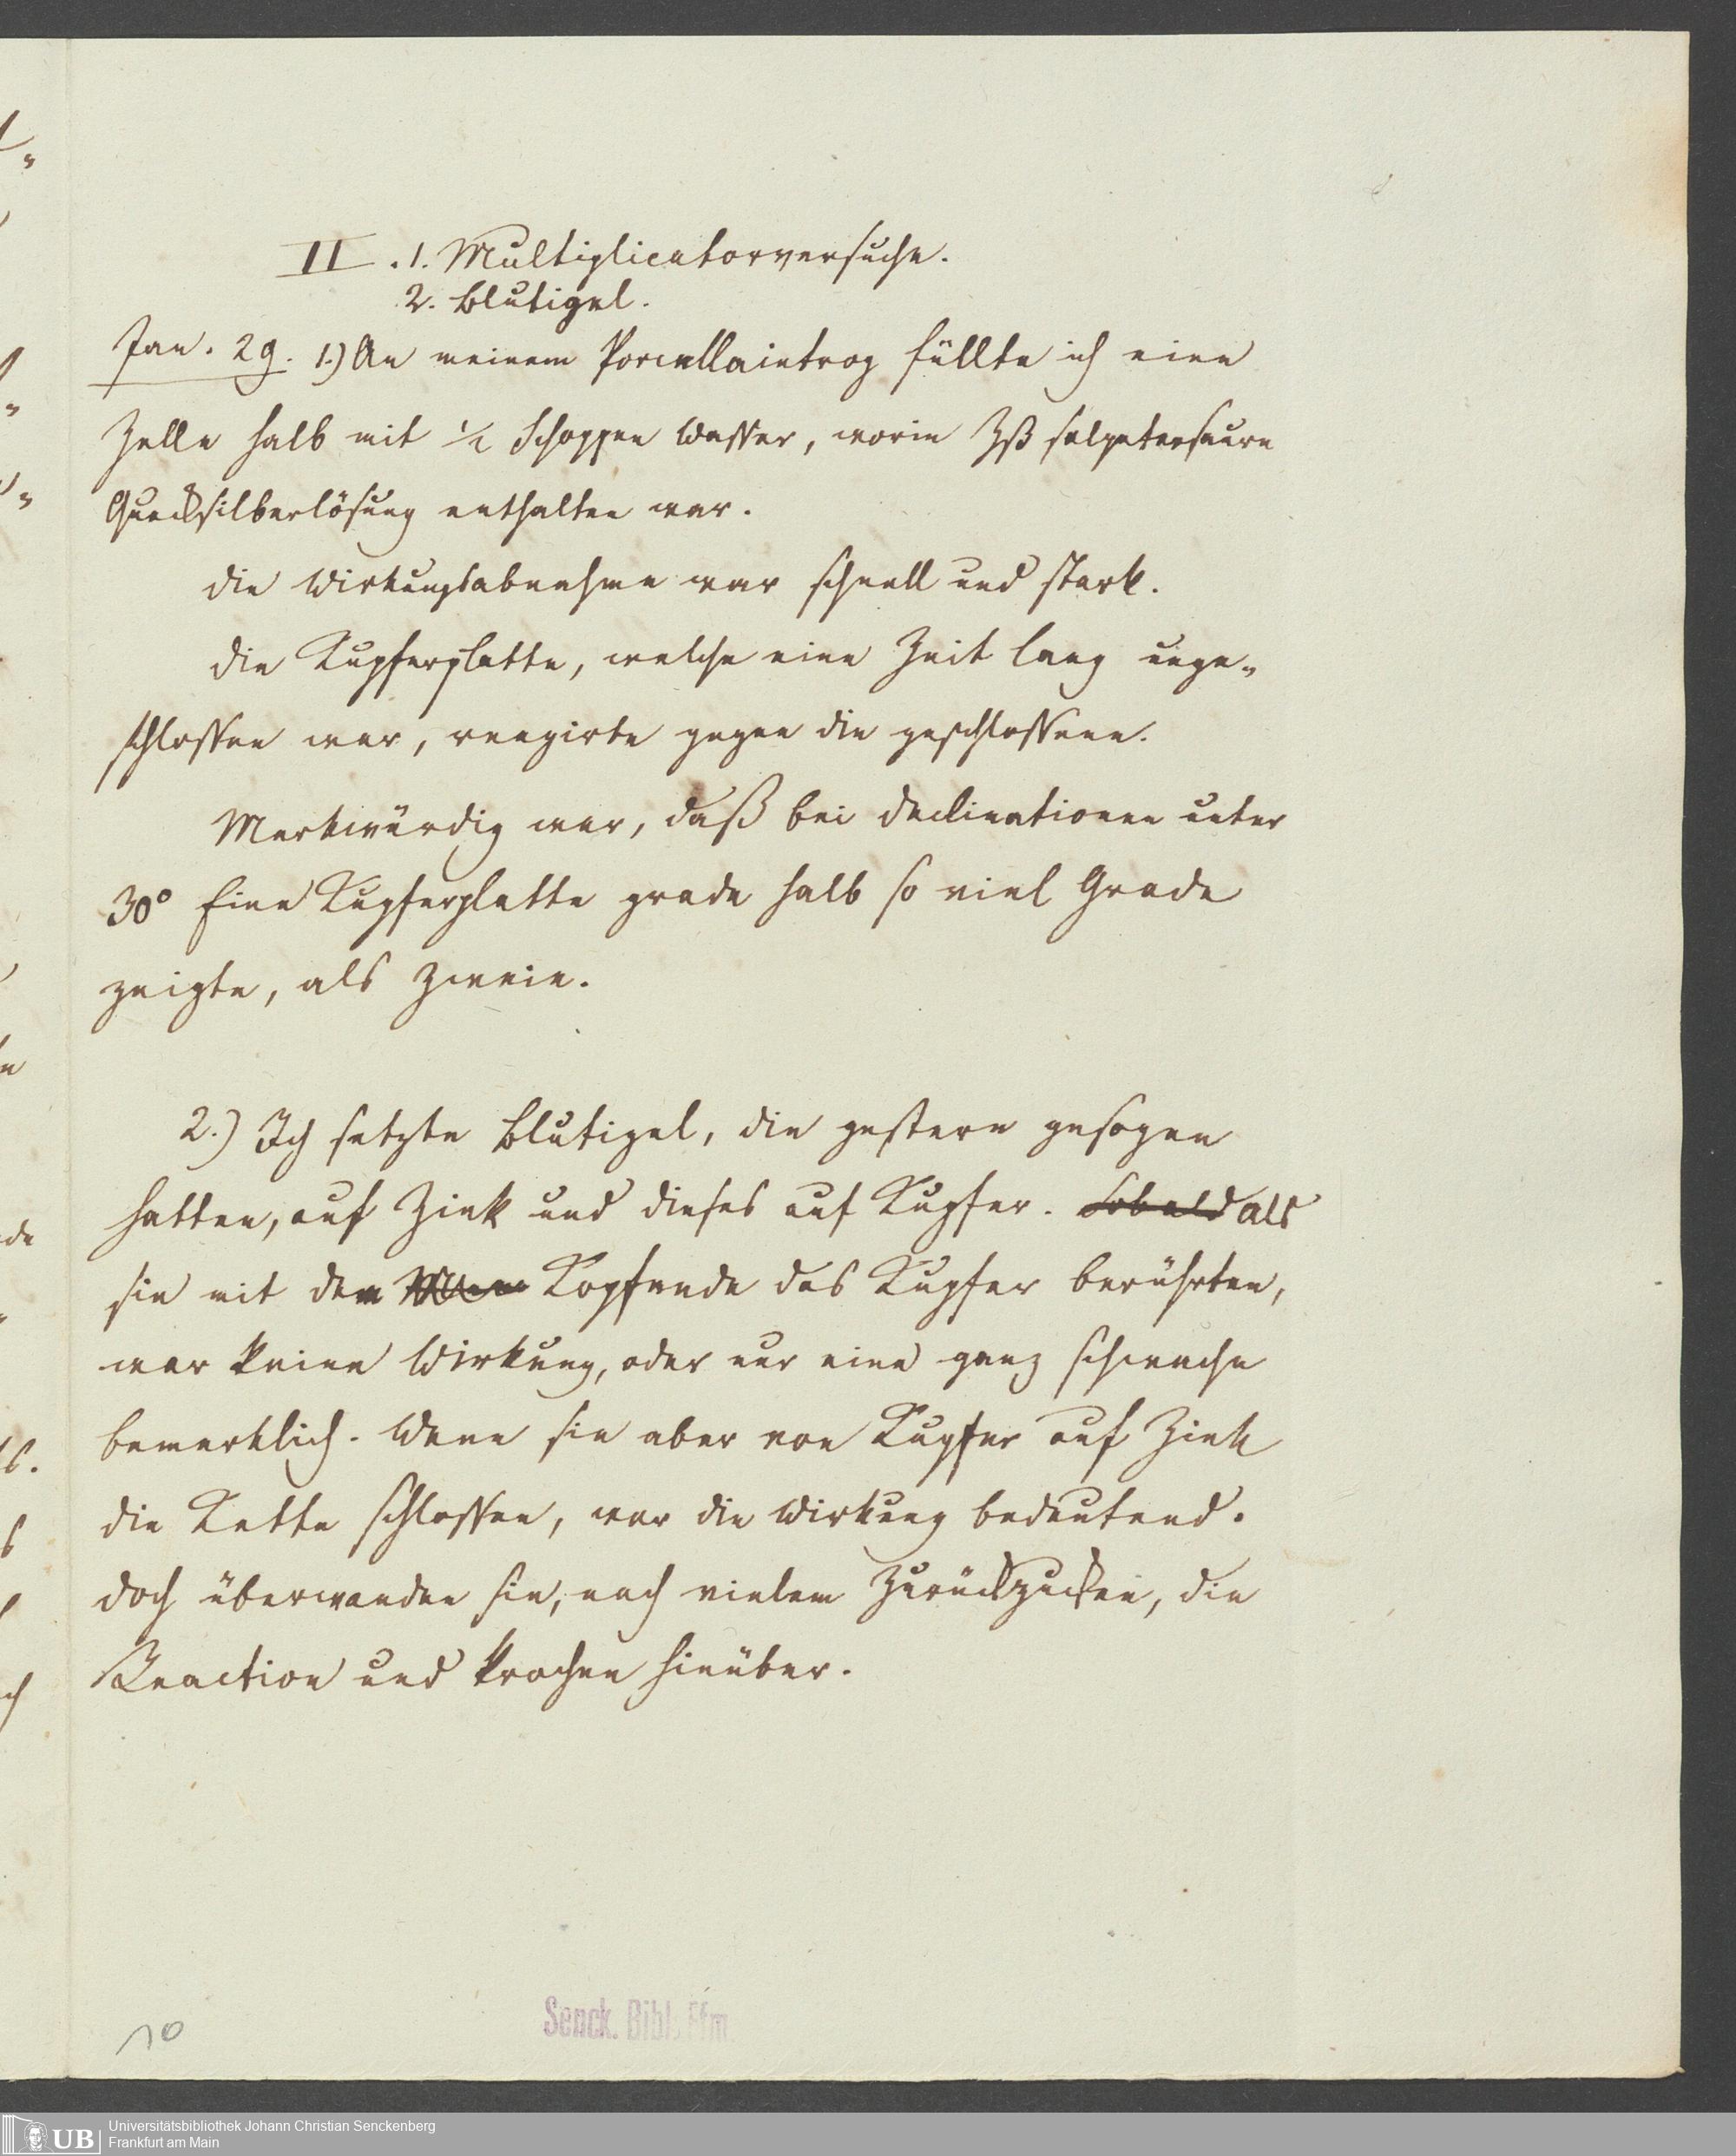 II. 1. Multiplicatorversuche.
2. Blutigel.
Jan. 29. 1.) An meinem Porcellaintrog füllte ich eine
Zelle halb mit 1/2 Schoppen Wasser, worin ʒß salpetersaure
Quecksilberlösung enthalten war.
Die Wirkungsabnahme war schnell und stark.
Die Kupferplatte, welche eine Zeit lang unge-
schlossen war, reagirte gegen die geschlossene.
Merkwürdig war, daß bei Declinationen unter
30° Eine Kupferplatte grade halb so viel Grade
zeigte, als zweie.
2.) Ich setzte Blutigel, die gestern gesogen
hatten, auf Zink und dieses auf Kupfer. Sobald als
sie mit dem Kopfende das Kupfer berührten,
war keine Wirkung, oder nur eine ganz schwache
bemerklich. Wenn sie aber von Kupfer auf Zink
die Kette schlossen, war die Wirkung bedeutend.
Doch überwanden sie, nach vielem Zurückzucken, die
Reaction und krochen hinüber.
10
Senck. Bibl. Ffm
UB
Universitätsbibliothek Johann Christian Senckenberg
Frankfurt am Main